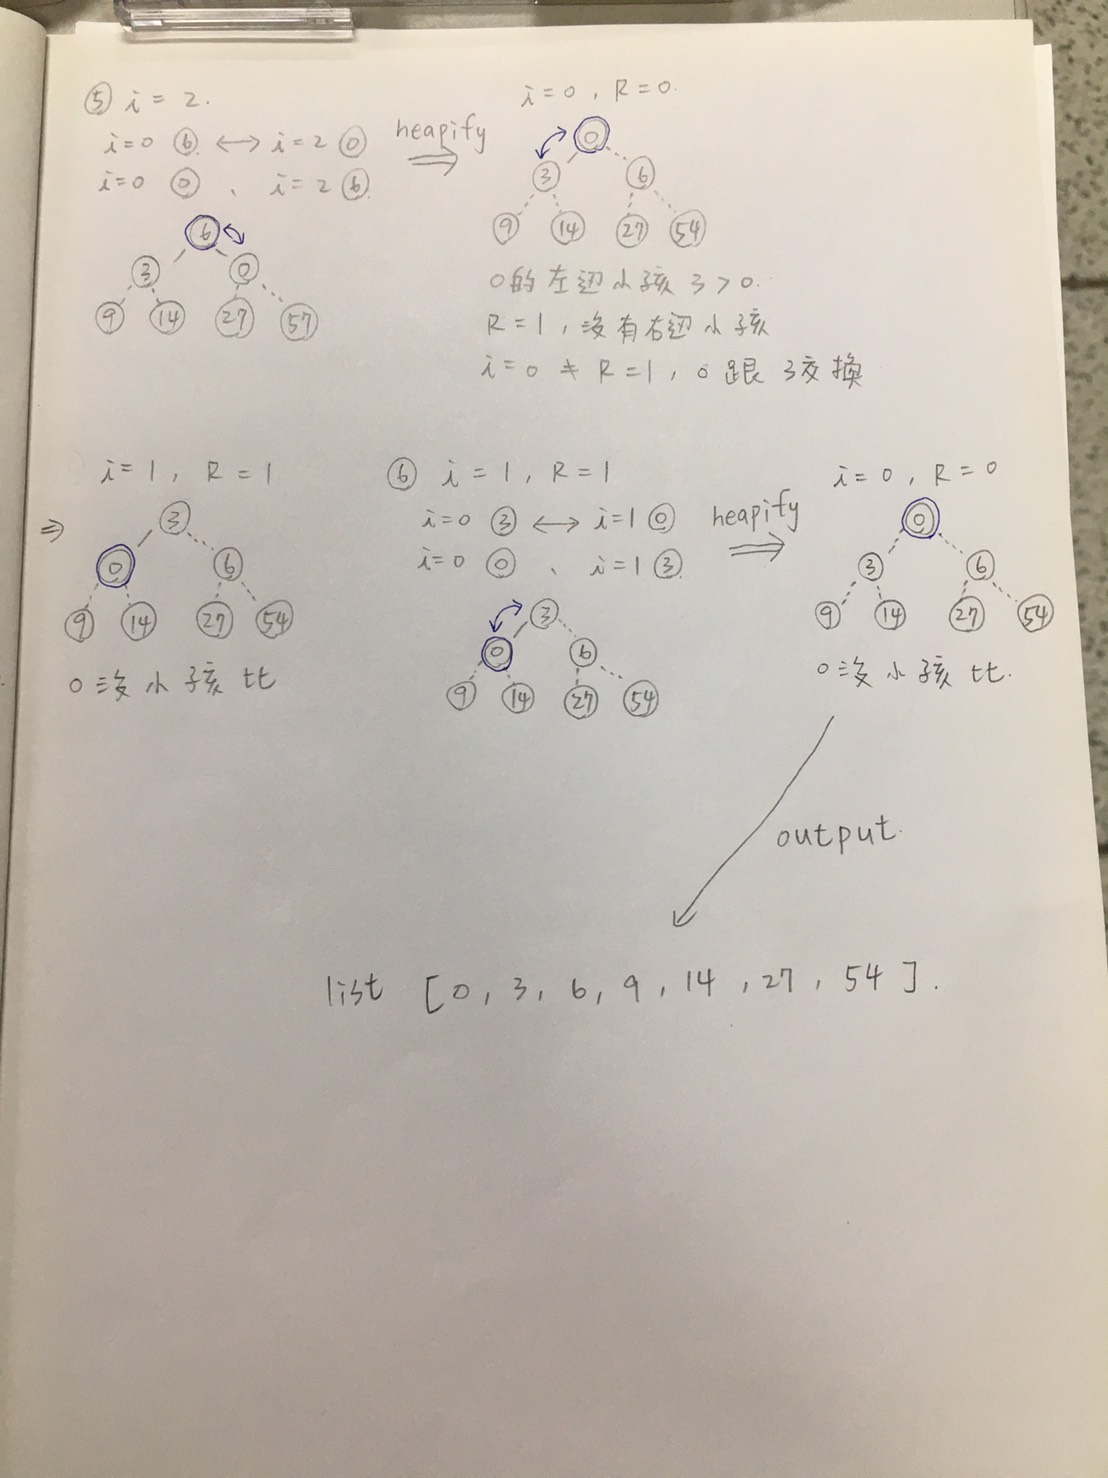 ⑤ i = 2.
i=0 ⑥ ↔ i=2 ⓪
i=0 ⓪ 、 i=2 ⑥
6
3 0
9 14 27 57
heapify
⇒
i=0 , R=0.
0
3 6
9 14 27 54
0的左边小孩 3>0.
R=1,沒有右边小孩
i=0 ≠ R=1, 0跟3交換
⇒
i=1, R=1
3
0 6
9 14 27 54
0沒小孩比
⑥ i=1, R=1
i=0 ③ ↔ i=1 ⓪
i=0 ⓪ 、 i=1 ③
3
0 6
9 14 27 54
heapify
⇒
i=0, R=0
0
3 6
9 14 27 54
0沒小孩比.
output.
list [0, 3, 6, 9, 14, 27, 54].